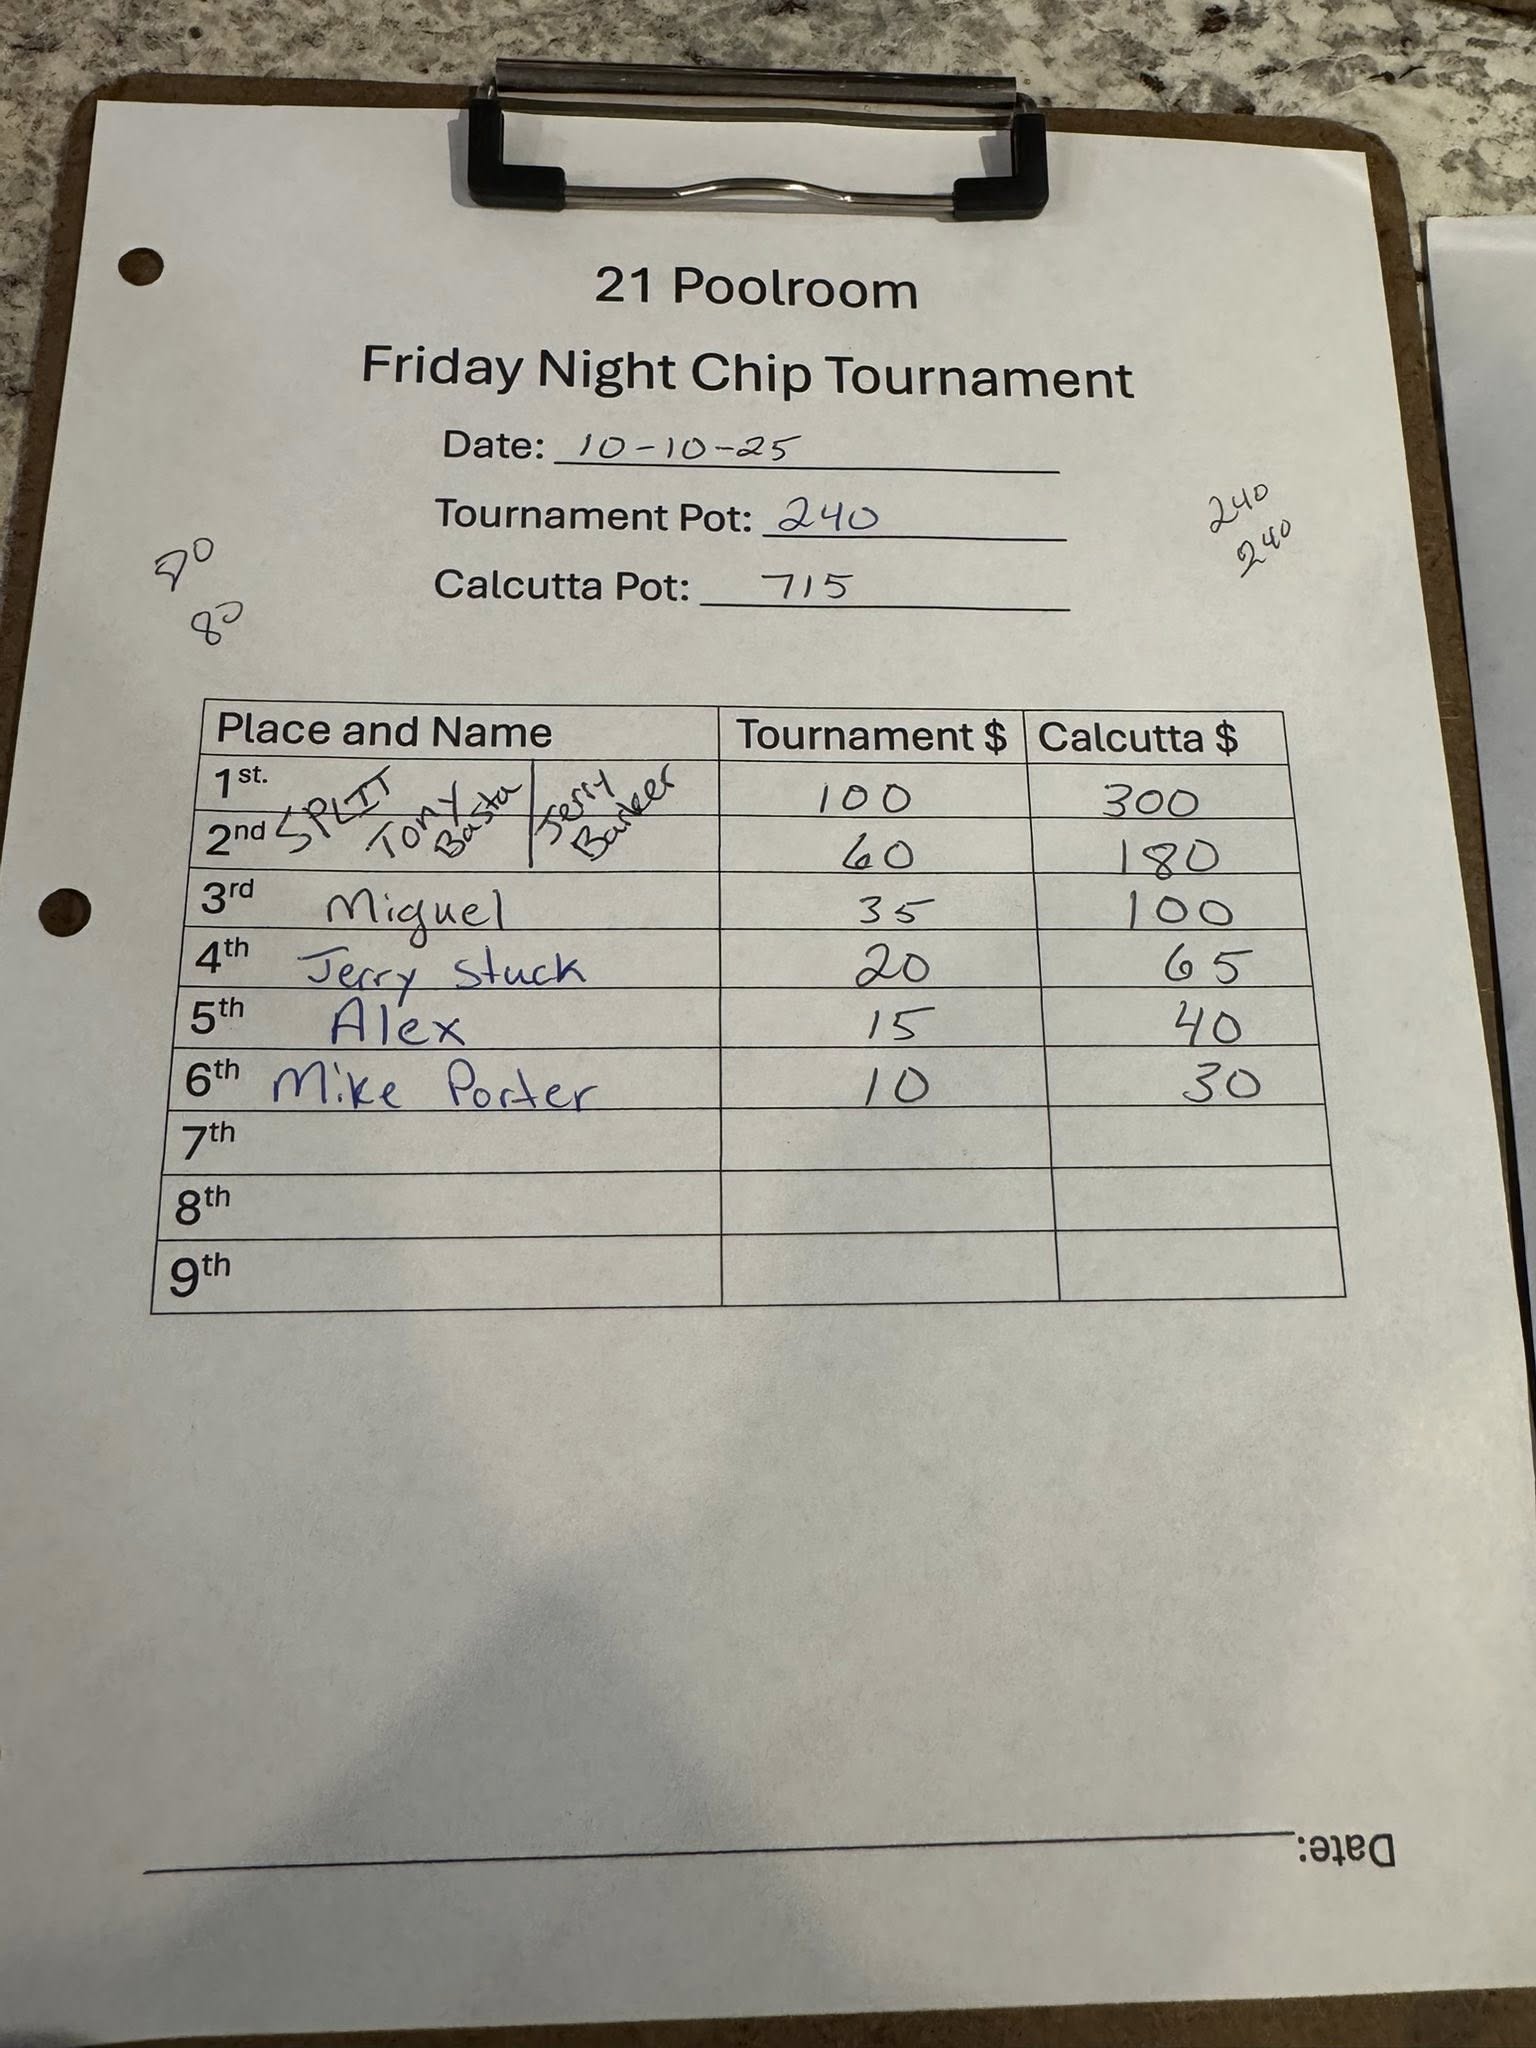 21 Poolroom
Friday Night Chip Tournament
Date: 10-10-25
Tournament Pot: 240
Calcutta Pot: 715
240
240
80
Place and Name Tournament $ Calcutta $
1st. 100 300
SPLIT Tony Basta | Jerry Barker
2nd 60 180
3rd Miguel 35 100
4th Jerry Stuck 20 65
5th Alex 15 40
6th Mike Porter 10 30
7th
8th
9th
Date: